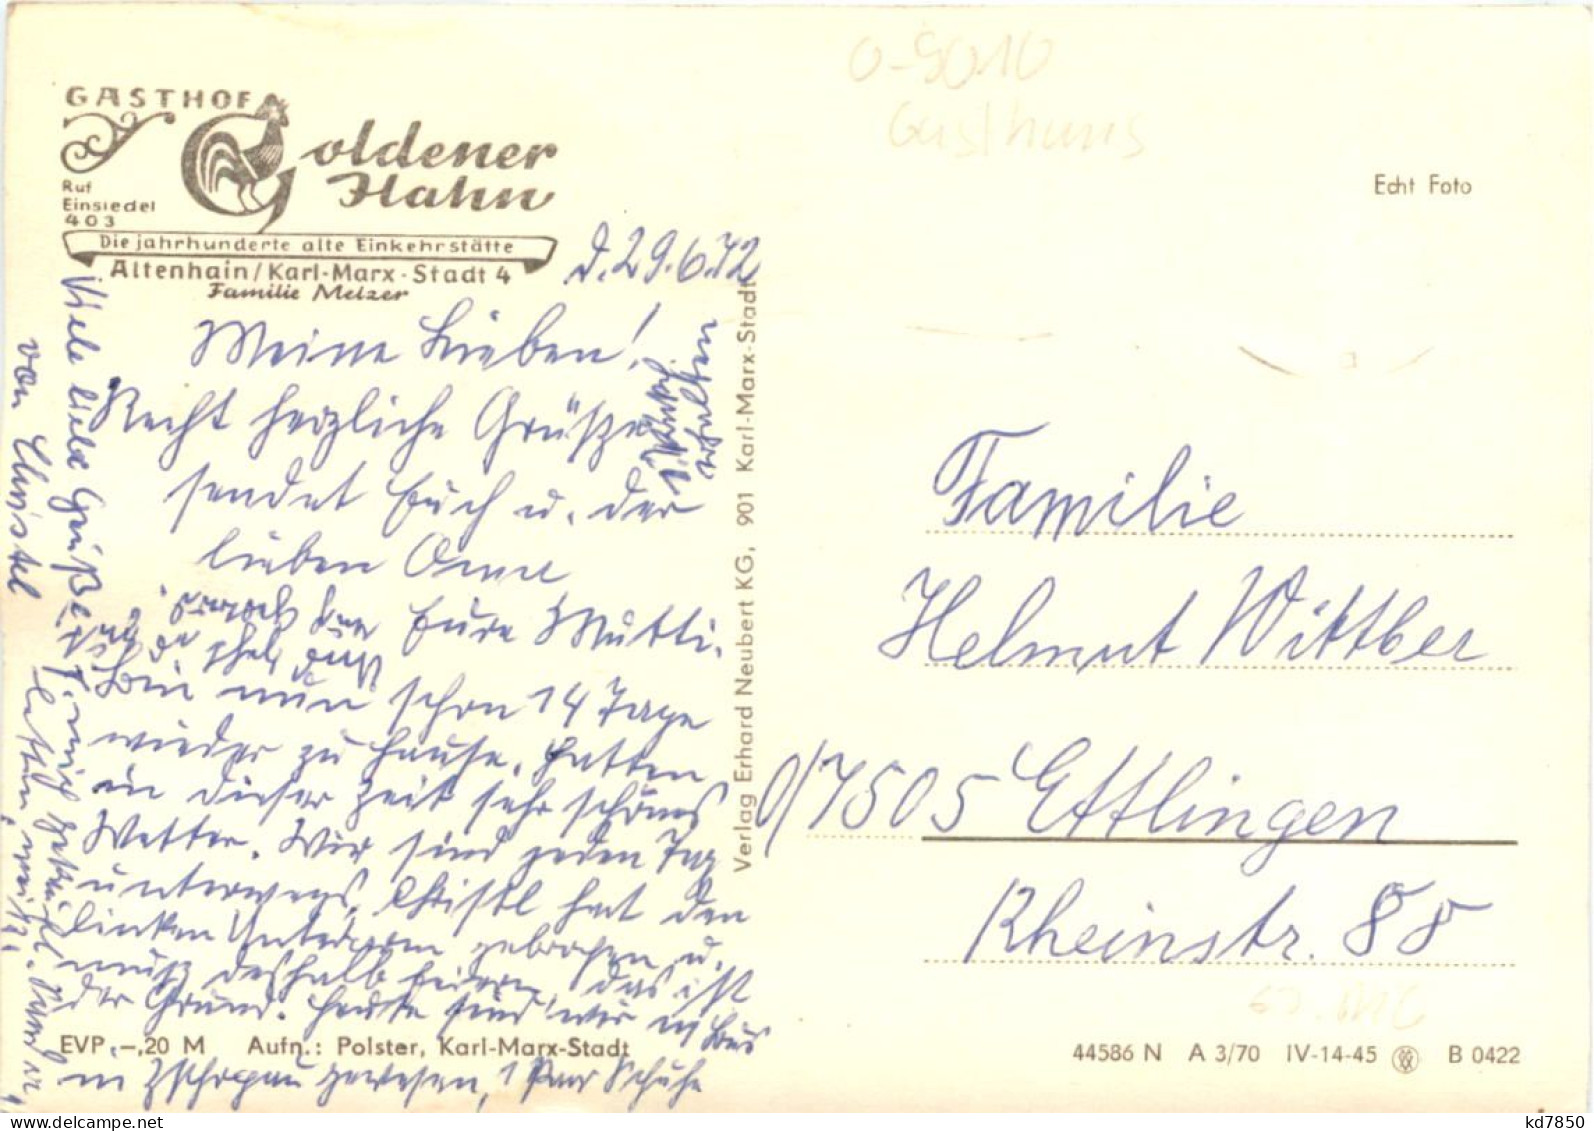 GASTHOF
Goldener
Hahn
Ruf
Einsiedel
403
Die jahrhunderte alte Einkehrstätte
Altenhain/Karl-Marx-Stadt 4
Familie Melzer
d. 29.6.72
Meine Lieben!
Recht herzliche Grüße
sendet Euch u. der
lieben Oma
Eure Mutti.
Bin nun schon 14 Tage
wieder zu Hause. Hatten
in dieser Zeit sehr schönes
Wetter. Wir sind jeden Tag
unterwegs. Christl hat den
linken Unterarm gebrochen u.
muß deshalb feiern, das ist
der Grund. Heute sind wir m/Bus
in Zschopau gewesen, 1 Paar Schuhe
Viele liebe Grüße
von Christel
EVP -,20 M Aufn.: Polster, Karl-Marx-Stadt
Verlag Erhard Neubert KG, 901 Karl-Marx-Stadt
0-9010
Gasthaus
Echt Foto
Familie
Helmut Wittber
D/7505 Ettlingen
Rheinstr. 88
44586 N A 3/70 IV-14-45 B 0422
kd7850